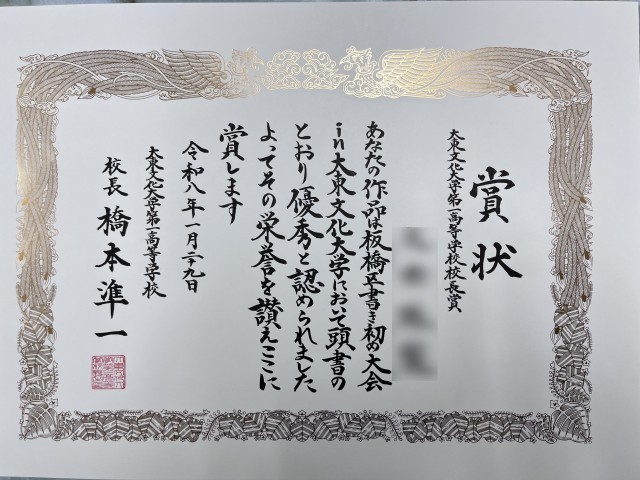 賞状
大東文化大学第一高等学校校長賞
あなたの作品は板橋区書き初め大会
in大東文化大学において頭書の
とおり優秀と認められました
よってその栄誉を讃えここに
賞します
令和八年一月二九日
大東文化大学第一高等学校
校長 橋本準一